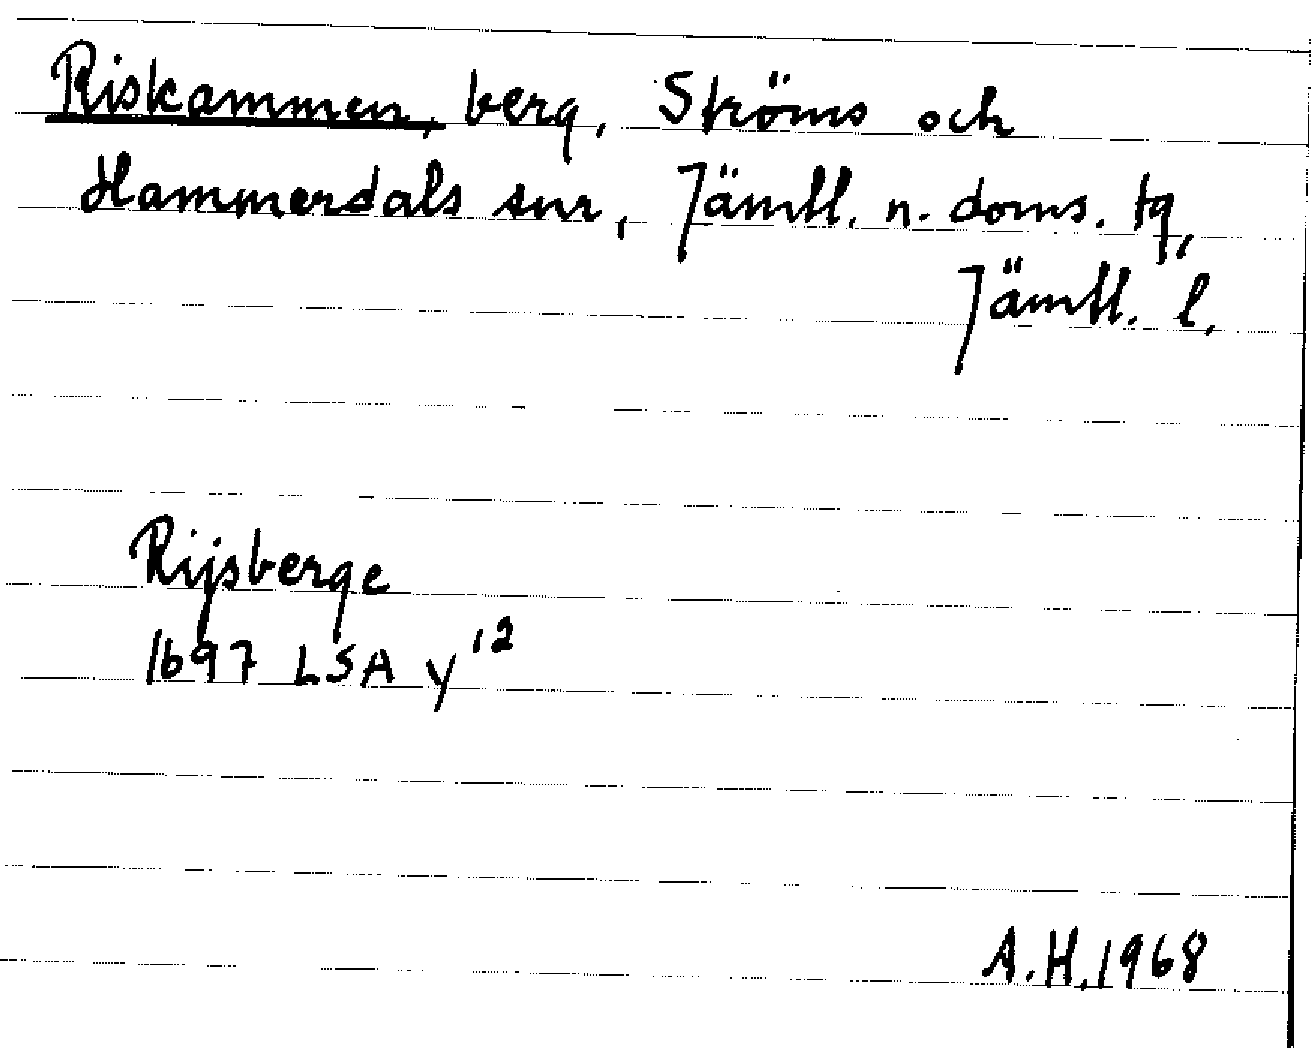 Riskammen, berg, Ströms och
Hammerdals snr, Jämtl. n. doms. tg,
Jämtl. l.
Rijsberge
1697 LSA y¹²
A.H. 1968